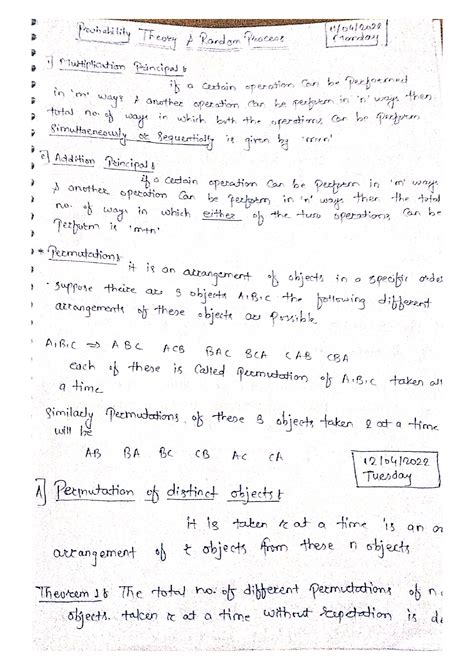 Probability Theory & Random Process
11/04/2022
Monday
1) Multiplication Principal :
if a certain operation can be performed
in 'm' ways & another operation can be perform in 'n' ways then
total no. of ways in which both the operations can be perform
Simultaneously or Sequentially is given by 'm×n'
2) Addition Principal :
if a certain operation can be perform in 'm' ways
& another operation can be perform in 'n' ways then the total
no. of ways in which either of the two operations can be
perform is 'm+n'
* Permutations :
it is an arrangement of objects in a specific order
· suppose there are 3 objects A,B,C the following different
arrangements of these objects are possible
A,B,C ⇒ ABC ACB BAC BCA CAB CBA
each of these is called permutation of A,B,C taken all
a time
Similarly permutations of these 3 objects taken 2 at a time
will be
AB BA BC CB AC CA
12/04/2022
Tuesday
A] Permutation of distinct objects :
it is taken r at a time is an or
arrangement of r objects from these n objects
Theorem 1 : The total no. of different permutations of n
objects taken r at a time without is de